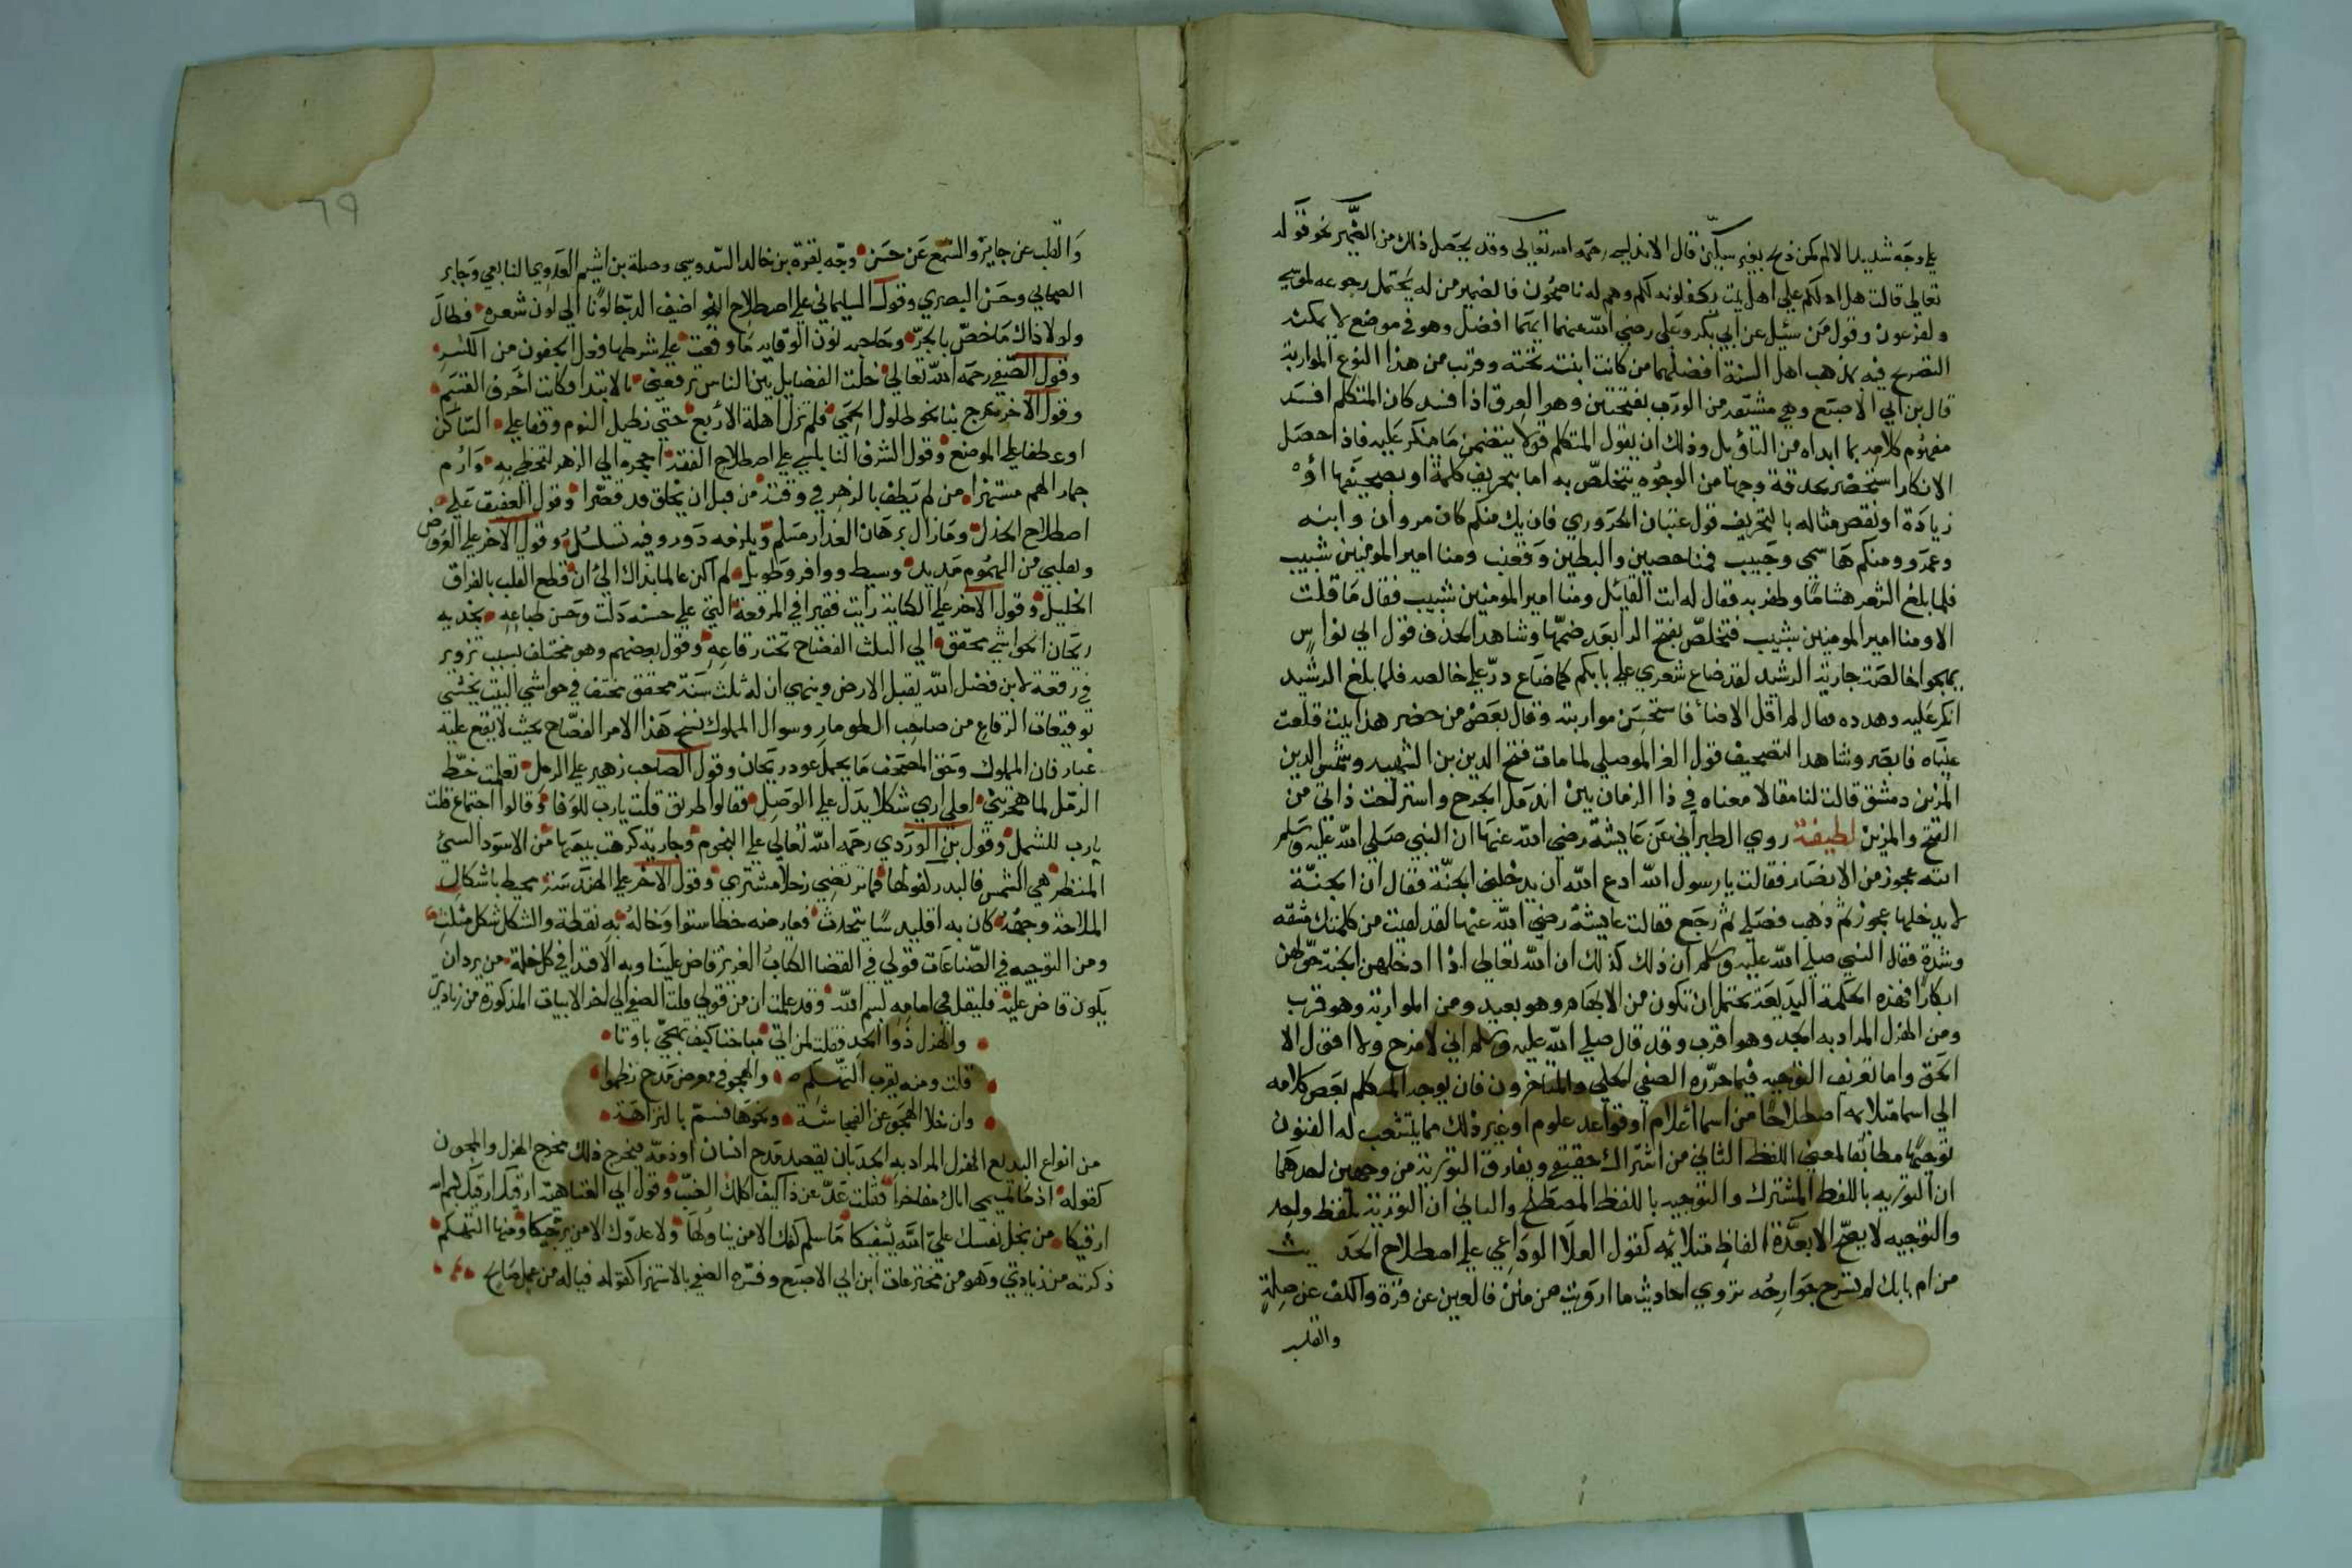 علي وجه شديد الالم كمن ذبح بغير سكين قال الاندلسي رحمه الله تعالى وقد يحصل ذلك من الضمير نحو قوله
تعالى قالت هل ادلكم علي اهل بيت يكفلونه لكم وهم له ناصحون فالضمير من له يحتمل رجوعه لموسي
ولفرعون وقول من سئيل عن ابي بكر وعلى رضي الله عنهما ايهما افضل وهو في موضع لا يمكنه
التصريح فيه بمذهب اهل السنة افضلهما من كانت ابنته تحته وقريب من هذا النوع المواربة
قال بن ابي الاصبع وهي مشتقه من الورب بفتحتين وهو العرق اذا فسد كان المتكلم افسد
مفهوم كلامه بما ابداه من التاويل وذلك ان يقول المتكلم قولا يتضمن ما ينكر عليه فاذا حصل
الانكار استحضر بحدقه وجها من الوجوه يتخلص به اما بتحريف كلمة او بصحيفها او
زيادة او نقص مثاله بالتحريف قول عتبان الحروري فان يك منكم كان مروان وابنه
وعمرو ومنكم هاشمي وحبيب فمنا حصين والبطين وقعنب ومنا امير المومنين شبيب
فلما بلغ الشعر هشاما وظفر به فقال له انت القائل ومنا امير المومنين شبيب فقال ما قلت
الا ومنا امير المومنين شبيب فتخلص بفتح الرا بعد ضمها وشاهد الحذف قول ابي نواس
يهجو خالصة جارية الرشيد لقد ضاع شعري علي بابكم كما ضاع در علي خالصه فلما بلغ الرشيد
انكر عليه وهدده فقال لم اقل الا ضاء فاستحسن مواربته وقال بعض من حضر هذا بيت قلعت
عيناه فابصر وشاهد التصحيف قول العز الموصلي لما مات فتح الدين بن الشهيد وشمس الدين
المزين دمشق قالت لنا مقالا معناه في ذا الزمان بين اندمل الجرح واسترحت ذاتي من
الفتح والمزين لطيفة روي الطبراني عن عايشة رضي الله عنها ان النبي صلى الله عليه وسلم
اتته عجوز من الانصار فقالت يا رسول الله ادع الله ان يدخلني الجنة فقال ان الجنة
لا يدخلها عجوز ثم ذهب فصلي ثم رجع فقالت عايشة رضي الله عنها لقد لقيت من كلمتك مشقه
وشدة فقال النبي صلي الله عليه وسلم ان ذلك كذلك ان الله تعالى اذا ادخلهن الجنة حولهن
ابكارا فهذه الحكمة البديعة تحتمل ان تكون من الابهام وهو بعيد ومن المواربة وهو قريب
ومن الهزل المراد به الجد وهو اقرب وقد قال صلي الله عليه وسلم اني لامزح ولا اقول الا
الحق واما تعريف التوجيه فيما حرره الصفي الحلي والمتاخرون فان يوجه المتكلم بعض كلامه
الي اسما متلايمه اصطلاحا من اسما اعلام او قواعد علوم او غير ذلك مما يتشعب له الفنون
توجيها مطابقا لمعني اللفظ الثاني من اشتراك حقيقي ويفارق التورية من وجهين احدهما
ان التوريه باللفظ المشترك والتوجيه باللفظ المصطلح والثاني ان التورية بلفظ واحد
والتوجيه لا يصح الا بعدة الفاظ متلائمه كقول العلا الوداعي علي اصطلاح الحديث
من ام بابك لم تبرح جوارحه تروي احاديث ما اوليت من منن فالعين عن قرة والكف عن صلة
والقلب
٦٩
والقلب عن جابر والسمع عن حسن وجه بقرة بن خالد السدوسي وصلة بن اشيم العدوي التابعي وجابر
الصحابي وحسن البصري وقول السليماني علي اصطلاح النحو اضيف الدجا لونا الي لون شعره فطال
ولولا ذاك ما خص بالجر وحاجبه نون الوقايه ما وقعت علي شرطها فعل الجفون من الكسر
وقول الصفي رحمه الله تعالى خلت الفضايل بين الناس ترفعني بالابتدا وكانت احرف القسم
وقول الاخر عرج بنا نحو طلول الحمي فلم تزل اهلة الاربع حتي نطيل النوم وقفا علي الساكن
او عطفا علي الموضع وقول الشرف النابلسي علي اصطلاح الفقه احجج الي الزهر لتحظي به وارم
جمار الهم مستنفرا من لم يطف بالزهر في وقته من قبل ان يحلق قد قصرا وقول العفيف علي
اصطلاح الجدل وما زال برهان العذار مسلم ويلزمه دور وفيه تسلسل وقول الاخر علي العروض
وبقلبي من الهموم مديد وبسيط ووافر وطويل لم اكن عالما بذاك الي ان قطع القلب بالفراق
الخليل وقول الاخر علي الكتابة رايت فقيرا في المرقعة التي علي حسنه دلت وحسن طباعه بخديه
ريحان الحواشي محقق الي الثلث الفضاح تحت رقاعه وقول بعضهم وهو مختلف بسبب تزوير
في رقعة لابن فضل الله يقبل الارض وينهي ان له ثلث سنة محقق مختف في حواشي البيت يخشي
توقيعات الرقاع من صاحب الطومار وسوال المملوك نسخ هذا الامر الفضاح بحيث لا يقع عليه
غبار فان المملوك وحق المصحف ما يحمل عود ريحان وقول الصاحب زهير علي الرمل تعلمت خط
الرمل لما هجرتني لعلي اري شكلا يدل علي الوصل فقالوا طريق قلت يارب للوفا وقالوا اجتماع قلت
يارب للشمل وقول بن الوردي رحمه الله تعالي علي النجوم وجارية كرهت بيعها من الاسود السي
المنظر هي الشمس فالبدر كفو لها فما ترتضي زحل المشتري وقول الاخر علي الهندسة محيط باشكال
الملاحة وجهه كان به اقليدسا يتحدث فعارضه خط استوا وخاله به نقطة والشكل شكل مثلث
ومن التوجيه في الصناعات قولي في القضا الكتاب العزيز قاض علينا وبه الاقتدا في كل خلة من يرد ان
يكون قاض عليه فليقل في امامه بسم الله وقد علمت ان من قولي قلت الصفي الي اخر الابيات المذكورة من زيادتي
والهزل ذو الجد فقلت لمن اتي مباحثا كيف تهجي باوتا
قلت ومنه يقرب التهكم والهجو في معرض مدح نظموا
وان خلا الهجو عن الفحاشة ونحوها فسم بالنزاهة
من انواع البديع الهزل المراد به الجد بان يقصد مدح انسان او ذمه فيخرج ذلك مخرج الهزل والمجون
كقوله اذا ما تميمي اتاك مفاخرا فقلت عد عن ذا كيف اكلك الضب وقول ابي العتاهية ارقيك ارقيك بسم الله
ارقيكا من بخل نفسك عل الله يشفيكا ما سلم كفك الا من يناولها ولا عدوك الا من يرجيكا ومنها التهكم
ذكرته من زيادتي وهو من مخترعات ابن ابي الاصبع وفسره الصفي بالاستهزا كقوله فياله من عمل صالح